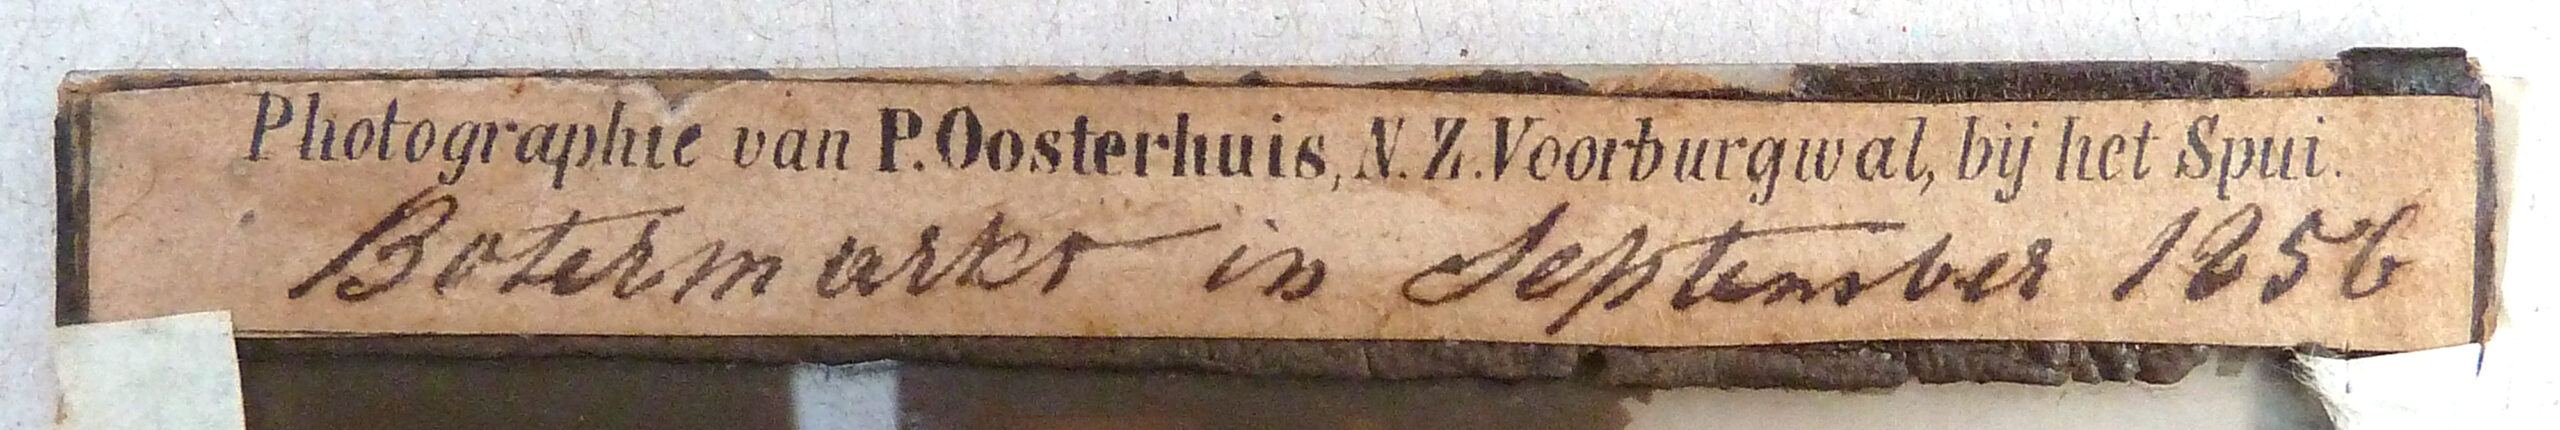 Photographie van P. Oosterhuis, N. Z. Voorburgwal, bij het Spui.
Botermarkt in September 1856